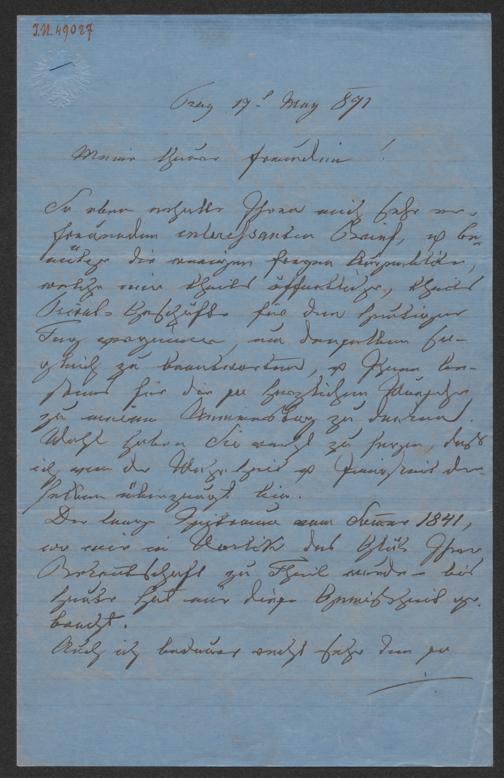 I.N. 49027
Prag 17t May 871
Meine theure Freundin!
So eben erhalte Ihren mich sehr er-
freuenden interessanten Brief, u be-
nütze die wenigen freyen Augenblicke,
welche mir theils öffentliche, theils
Privat-Geschäfte für den heutigen
Tag vergönnen, um denselben so-
gleich zu beantworten, u Ihnen be-
stens für die so herzlichen Wünsche
zu meinem Namenstag zu danken.
Wohl haben Sie recht zu sagen, daß
ich von der Wahrheit u Innigkeit der-
selben überzeugt bin.
Der lange Zeitraum vom Jänner 1841,
wo mir in Worlik das Glück Ihrer
Bekantschaft zu Theil wurde – bis
heute hat mir diese Gewißheit ge-
bracht.
Auch ich bedaure recht sehr den so